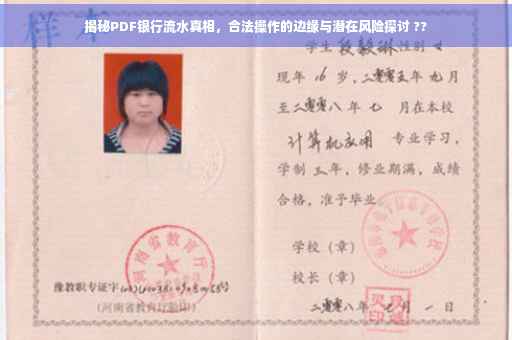 揭秘PDF银行流水真相，合法操作的边缘与潜在风险探讨 ??
样本
学生 段毅琳 性别 女
现年 16 岁，二零零五年 九月
至二零零八年 七 月在本校
计算机应用 专业学习，
学制 三年，修业期满，成绩
合格，准予毕业
学校（章）
校长（章）
二零零八年 月 一 日
河南省教育厅
豫教职专证字
（河南省教育厅验印）